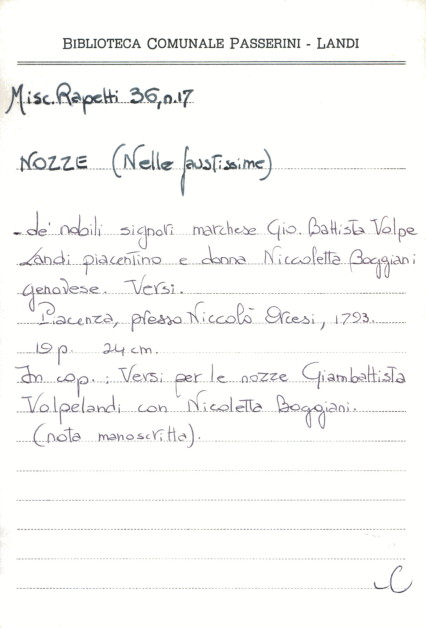 BIBLIOTECA COMUNALE PASSERINI - LANDI
Misc. Rapetti 36, n.17
NOZZE (Nelle faustissime)
- de' nobili signori marchese Gio. Battista Volpe
Landi piacentino e donna Niccoletta Boggiani
genovese. Versi.
Piacenza, presso Niccolò Orcesi, 1793.
19 p. 24 cm.
In cop.: Versi per le nozze Giambattista
Volpelandi con Nicoletta Boggiani.
(nota manoscritta).
C